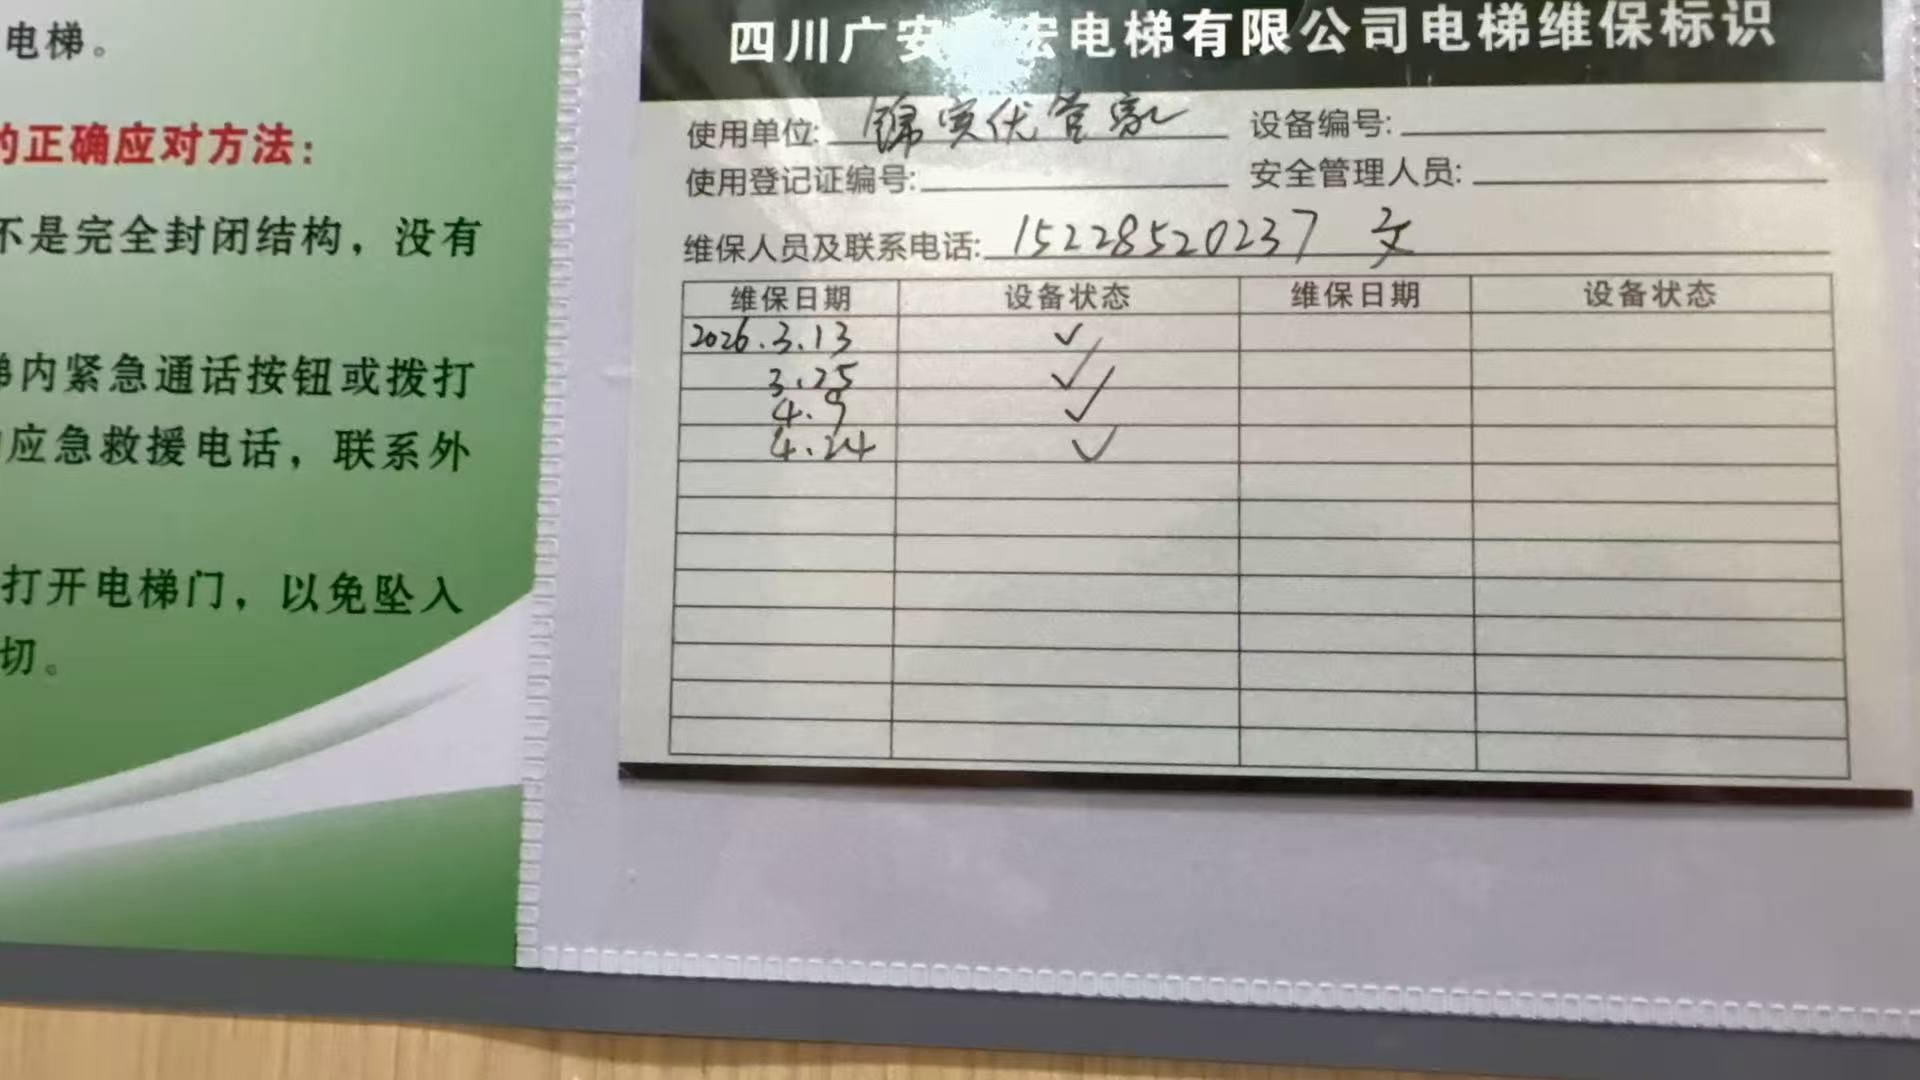 电梯。
的正确应对方法：
不是完全封闭结构，没有
梯内紧急通话按钮或拨打
应急救援电话，联系外
打开电梯门，以免坠入
切。
四川广安 宏电梯有限公司电梯维保标识
使用单位: 锦实优管家 设备编号:
使用登记证编号: 安全管理人员:
维保人员及联系电话: 15228520237 文
维保日期 设备状态 维保日期 设备状态
2026.3.13 ✓
3.25 ✓
4.9 ✓
4.24 ✓